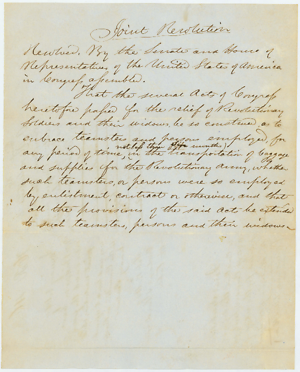 Joint Resolution
Resolved By the Senate and House of
Representatives of the United States of America
in Congress assembled.
That the several Acts of Congress
heretofore passed for the relief of Revolutionary
Soldiers and their widows, be so construed as to
embrace teamsters and persons employed for
any period of time, not less than months in the transportation of
and supplies for the Revolutionary Army, whether
such teamsters, or persons were so employed
by enlistment, contract or otherwise, and that
all the provisions of the said Acts be extended
to such teamsters, persons and their widows